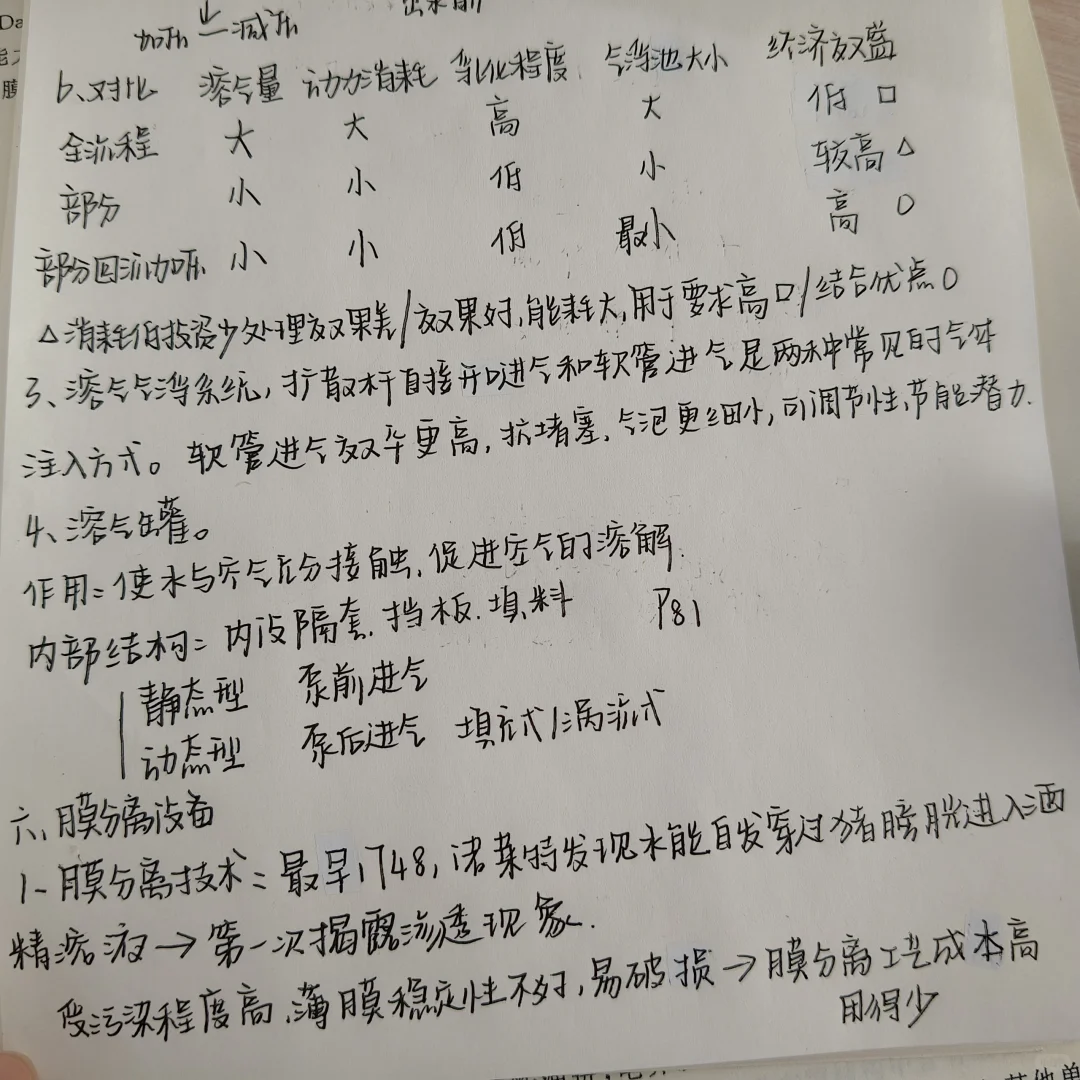 加压 ← 减压
b、对比 溶气量 动力消耗 乳化程度 气浮池大小 经济效益
全流程 大 大 高 大 低 □
部分 小 小 低 小 较高 △
部分回流加压 小 小 低 最小 高 ○
△消耗低投资少处理效果差/效果好,能耗大,用于要求高□/结合优点○
3、溶气气浮系统,扩散杆直接开口进气和软管进气是两种常见的气体
注入方式。软管进气效率更高,抗堵塞,气泡更细小,可调节性,节能潜力.
4、溶气罐。
作用:使水与空气充分接触,促进空气的溶解.
内部结构:内设隔套.挡板.填料 P81
静态型 泵前进气
动态型 泵后进气 填充式/涡流式
六、膜分离设备
1-膜分离技术:最早,1748,诺莱特发现水能自发穿过猪膀胱进入酒
精溶液→第一次揭露渗透现象.
受污染程度高、薄膜稳定性不好,易破损→膜分离工艺成本高
用得少